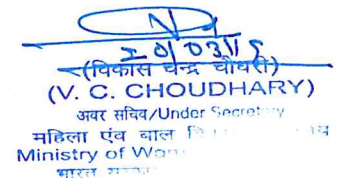 20/03/15
(विकास चन्द्र चौधरी)
(V. C. CHOUDHARY)
अवर सचिव/Under Secretary
महिला एंव बाल
Ministry of
भारत